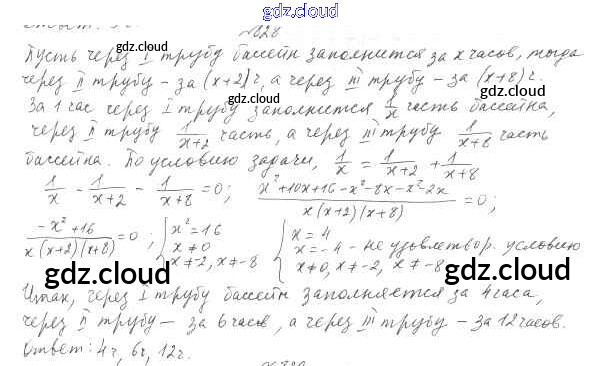 gdz.cloud
№28
Пусть через I трубу бассейн заполнится за x часов, тогда
через II трубу – за (x+2)ч, а через III трубу – за (x+8)ч.
За 1 час через I трубу заполнится 1/x часть бассейна,
через II трубу 1/(x+2) часть, а через III трубу 1/(x+8) часть
бассейна. По условию задачи, 1/x = 1/(x+2) + 1/(x+8)
1/x - 1/(x+2) - 1/(x+8) = 0; (x²+10x+16-x²-8x-x²-2x)/(x(x+2)(x+8)) = 0;
(-x²+16)/(x(x+2)(x+8)) = 0; { x²=16 { x=4
x≠0 x=-4 - не удовлетвор. условию
x≠-2, x≠-8 x≠0, x≠-2, x≠-8
gdz.cloud gdz.cloud
Итак, через I трубу бассейн заполняется за 4 часа,
через II трубу – за 6 часов, а через III трубу – за 12 часов.
Ответ: 4ч, 6ч, 12ч.
gdz.cloud gdz.cloud